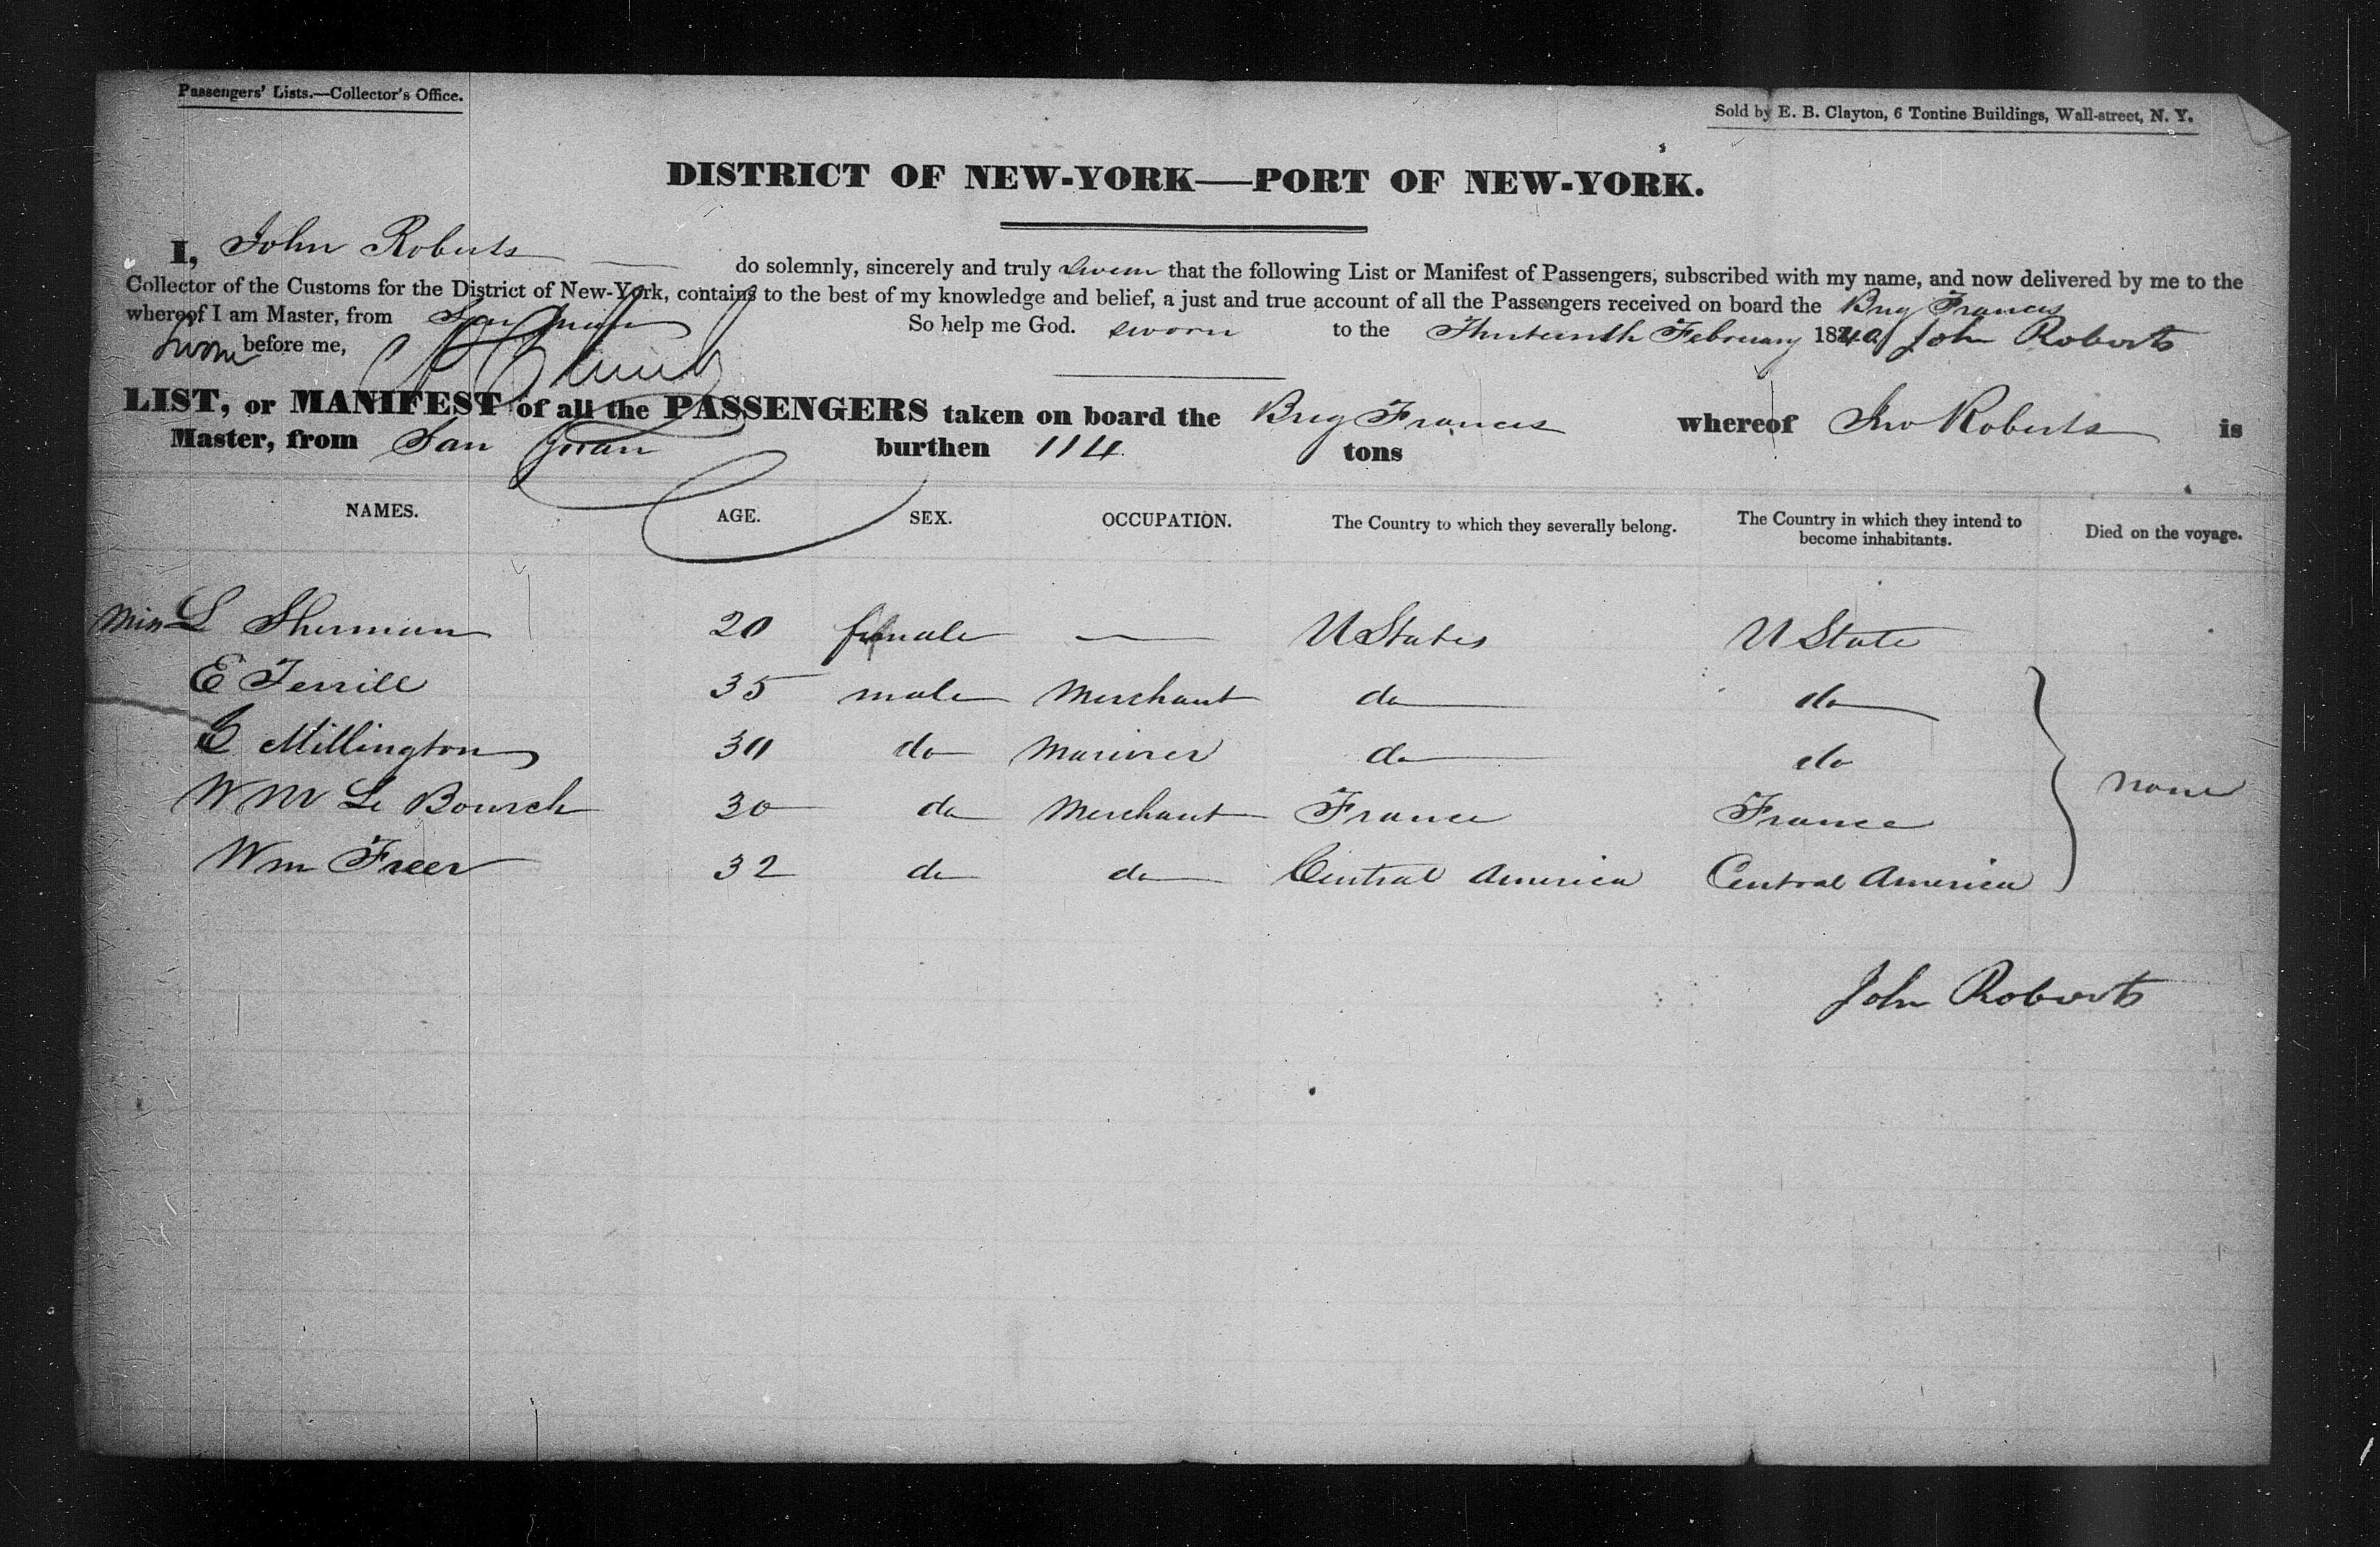 Passengers' Lists.—Collector's Office.
Sold by E. B. Clayton, 6 Tontine Buildings, Wall-street, N. Y.
DISTRICT OF NEW-YORK—PORT OF NEW-YORK.
I, John Roberts do solemnly, sincerely and truly swear that the following List or Manifest of Passengers, subscribed with my name, and now delivered by me to the
Collector of the Customs for the District of New-York, contains to the best of my knowledge and belief, a just and true account of all the Passengers received on board the Brig Frances
whereof I am Master, from San Juan So help me God. sworn to the Thirteenth February 1840 John Roberts
Sworn before me,
LIST, or MANIFEST of all the PASSENGERS taken on board the Brig Frances whereof Jno Roberts is
Master, from San Juan burthen 114 tons
NAMES. AGE. SEX. OCCUPATION. The Country to which they severally belong. The Country in which they intend to become inhabitants. Died on the voyage.
Miss L Sherman 20 female — U States U State
E Terrill 35 male Merchant do do
Millington 30 do Mariner do do
Wm Le Bourch 30 do Merchant France France
none
Wm Freer 32 do do Central America Central America
John Roberts